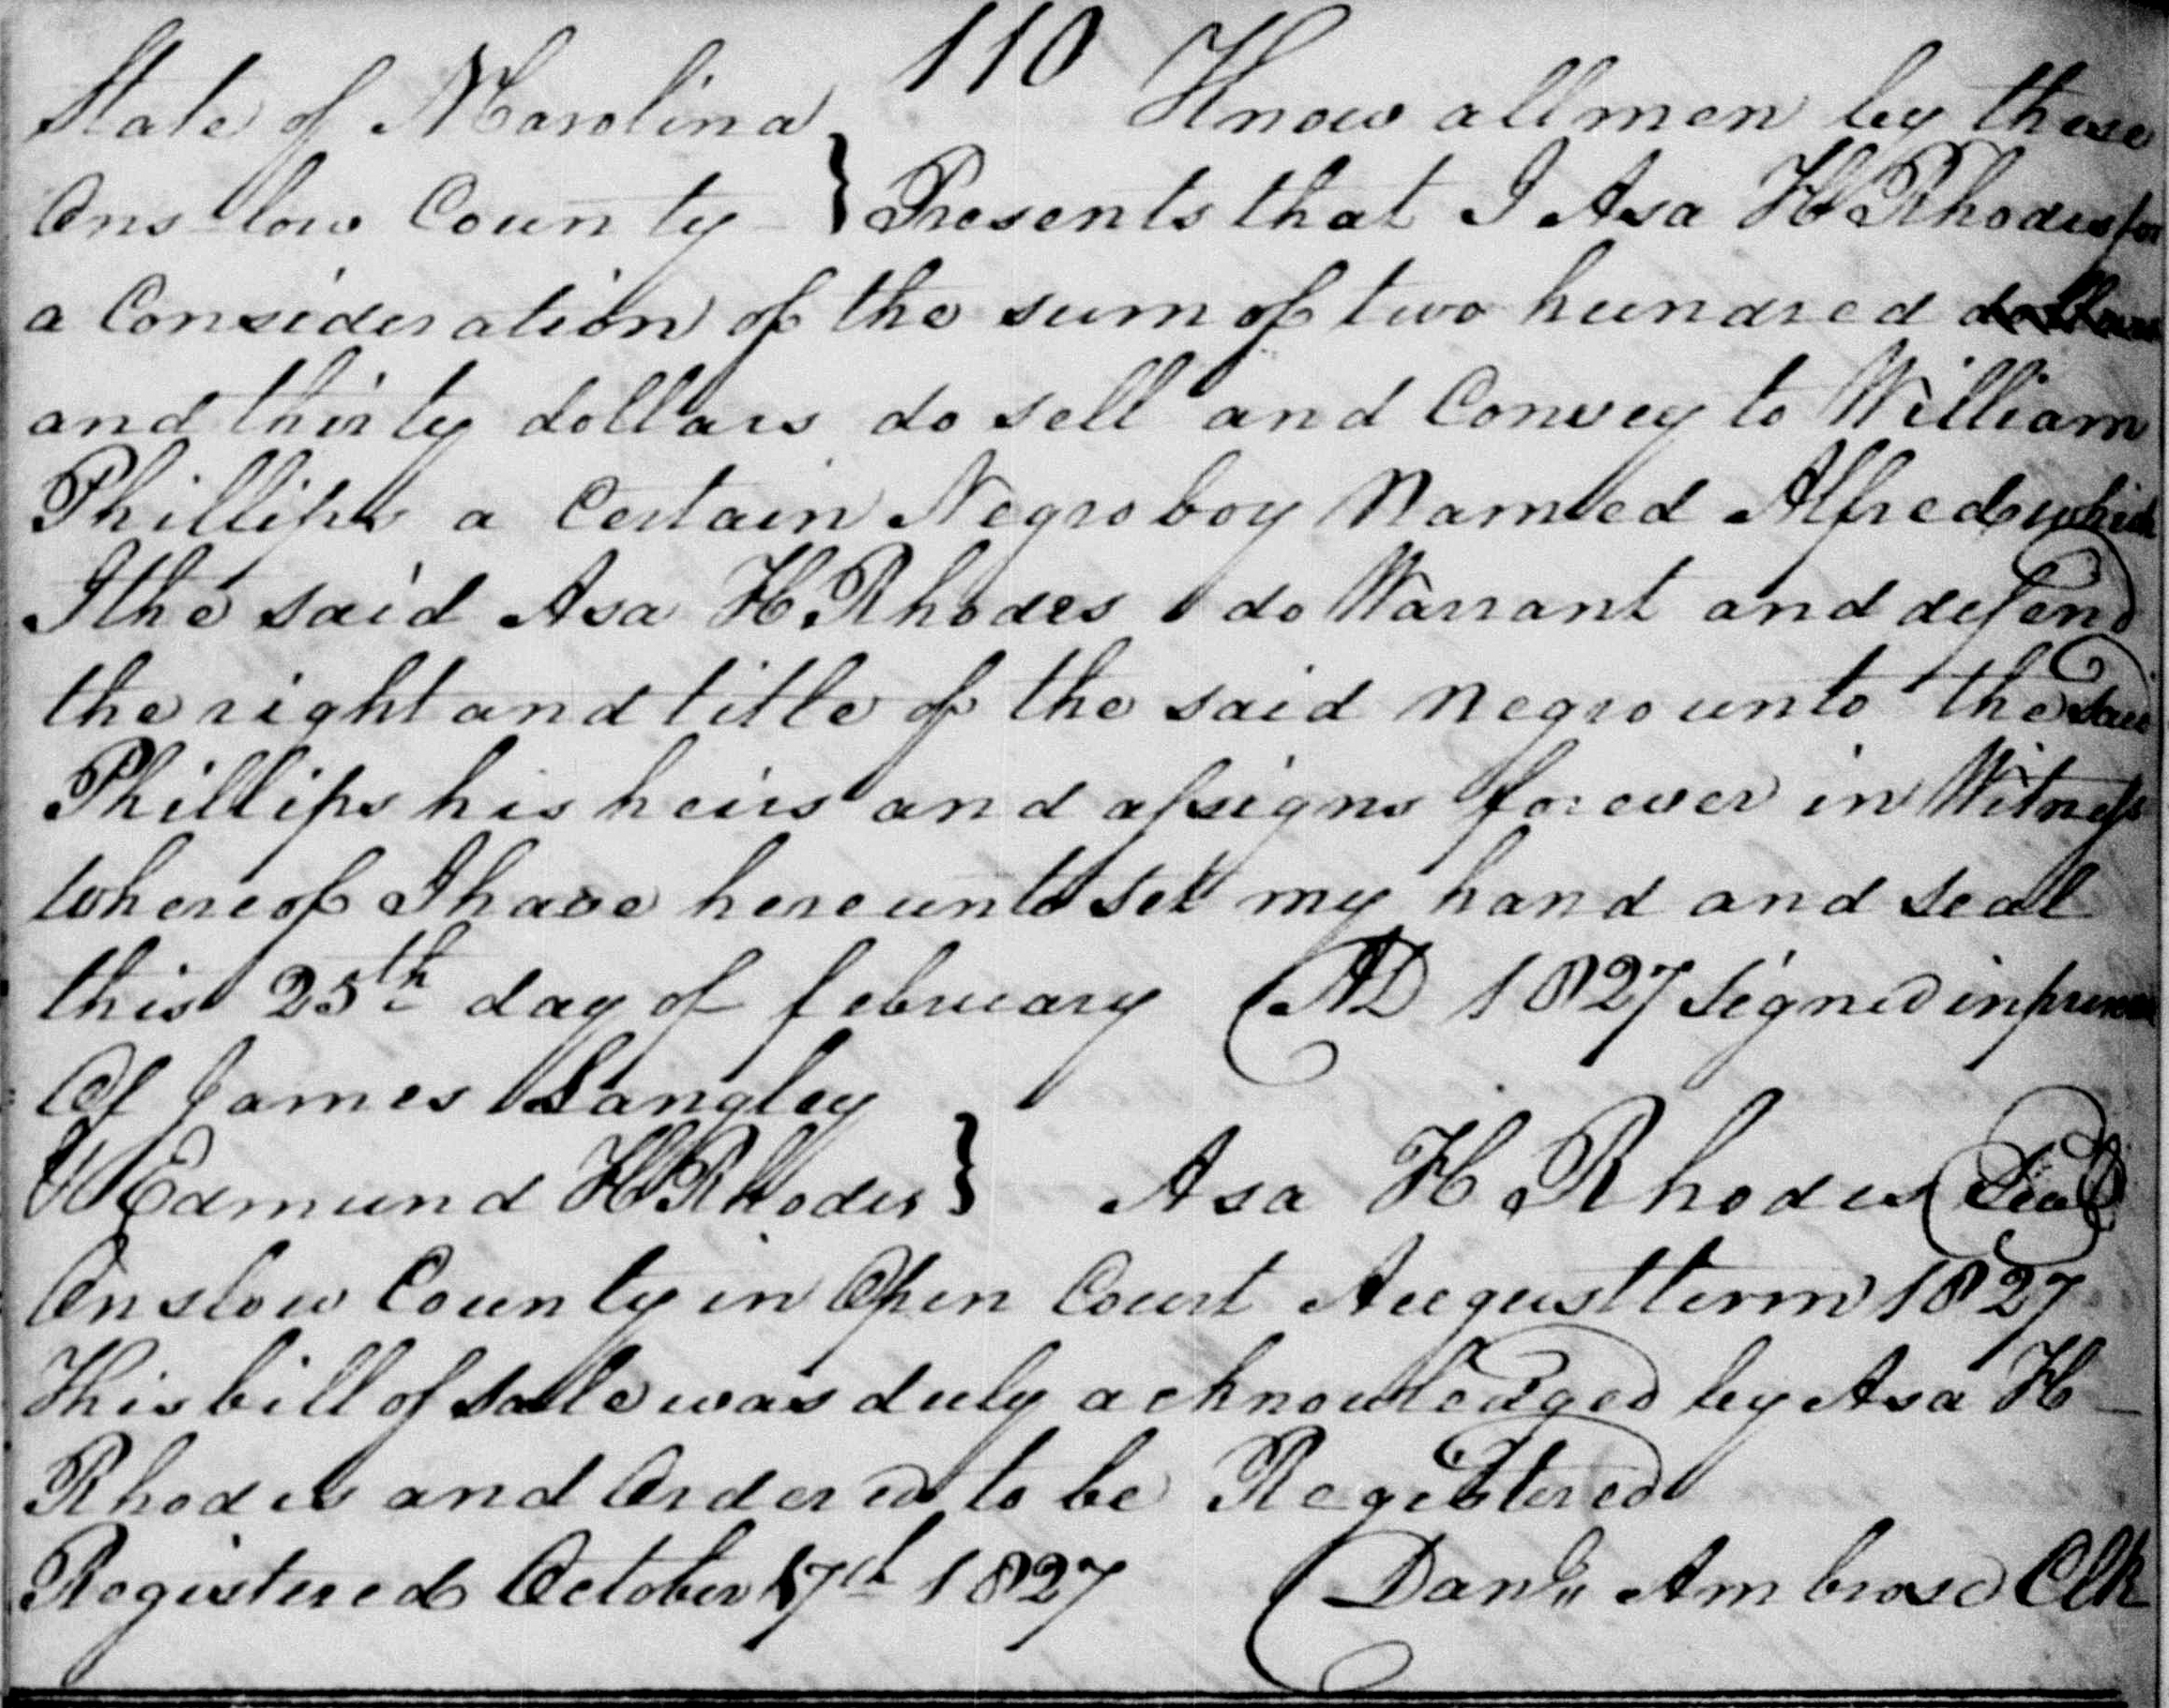 110
State of N Carolina } Know all men by these
Onslow County } Presents that I Asa H Rhodes for
a Consideration of the sum of two hundred dollars
and thirty dollars do sell and Convey to William
Phillips a Certain Negro boy Named Alfred which
I the said Asa H Rhodes do Warrant and defend
the right and title of the said Negro unto the said
Phillips his heirs and assigns forever in Witness
whereof I have hereunto set my hand and seal
this 25th day of february AD 1827 Signed in presence
Of James Langley
Edmund H Rhodes } Asa H Rhodes Seal
Onslow County in Open Court August term 1827
This bill of sale was duly acknowledged by Asa H
Rhodes and Ordered to be Registered
Registered October 17th 1827 Danl Ambrose Clk